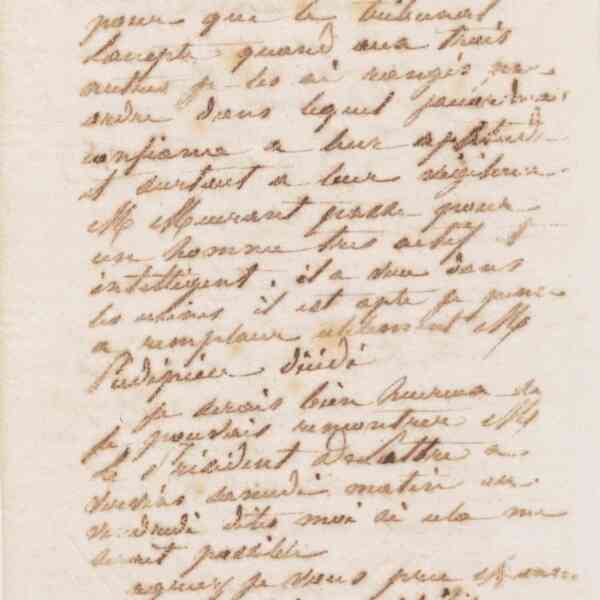 pour que le tribunal
l'accepte quand aux trois
autres je les ai rangés
ordre dans lequel j'aurais
confiance a leur aptitude
et surtout a leur vigilance
M Mourant passe pour
un homme tres actif et
intelligent. il a vecu dans
les usines il est apte je pense
a remplacer utilement M
décidé
je serais bien heureux si
je pouvais rencontrer M
le Président Delattre a
samedi matin ou
vendredi dites moi si cela me
serait possible
agréez je vous prie